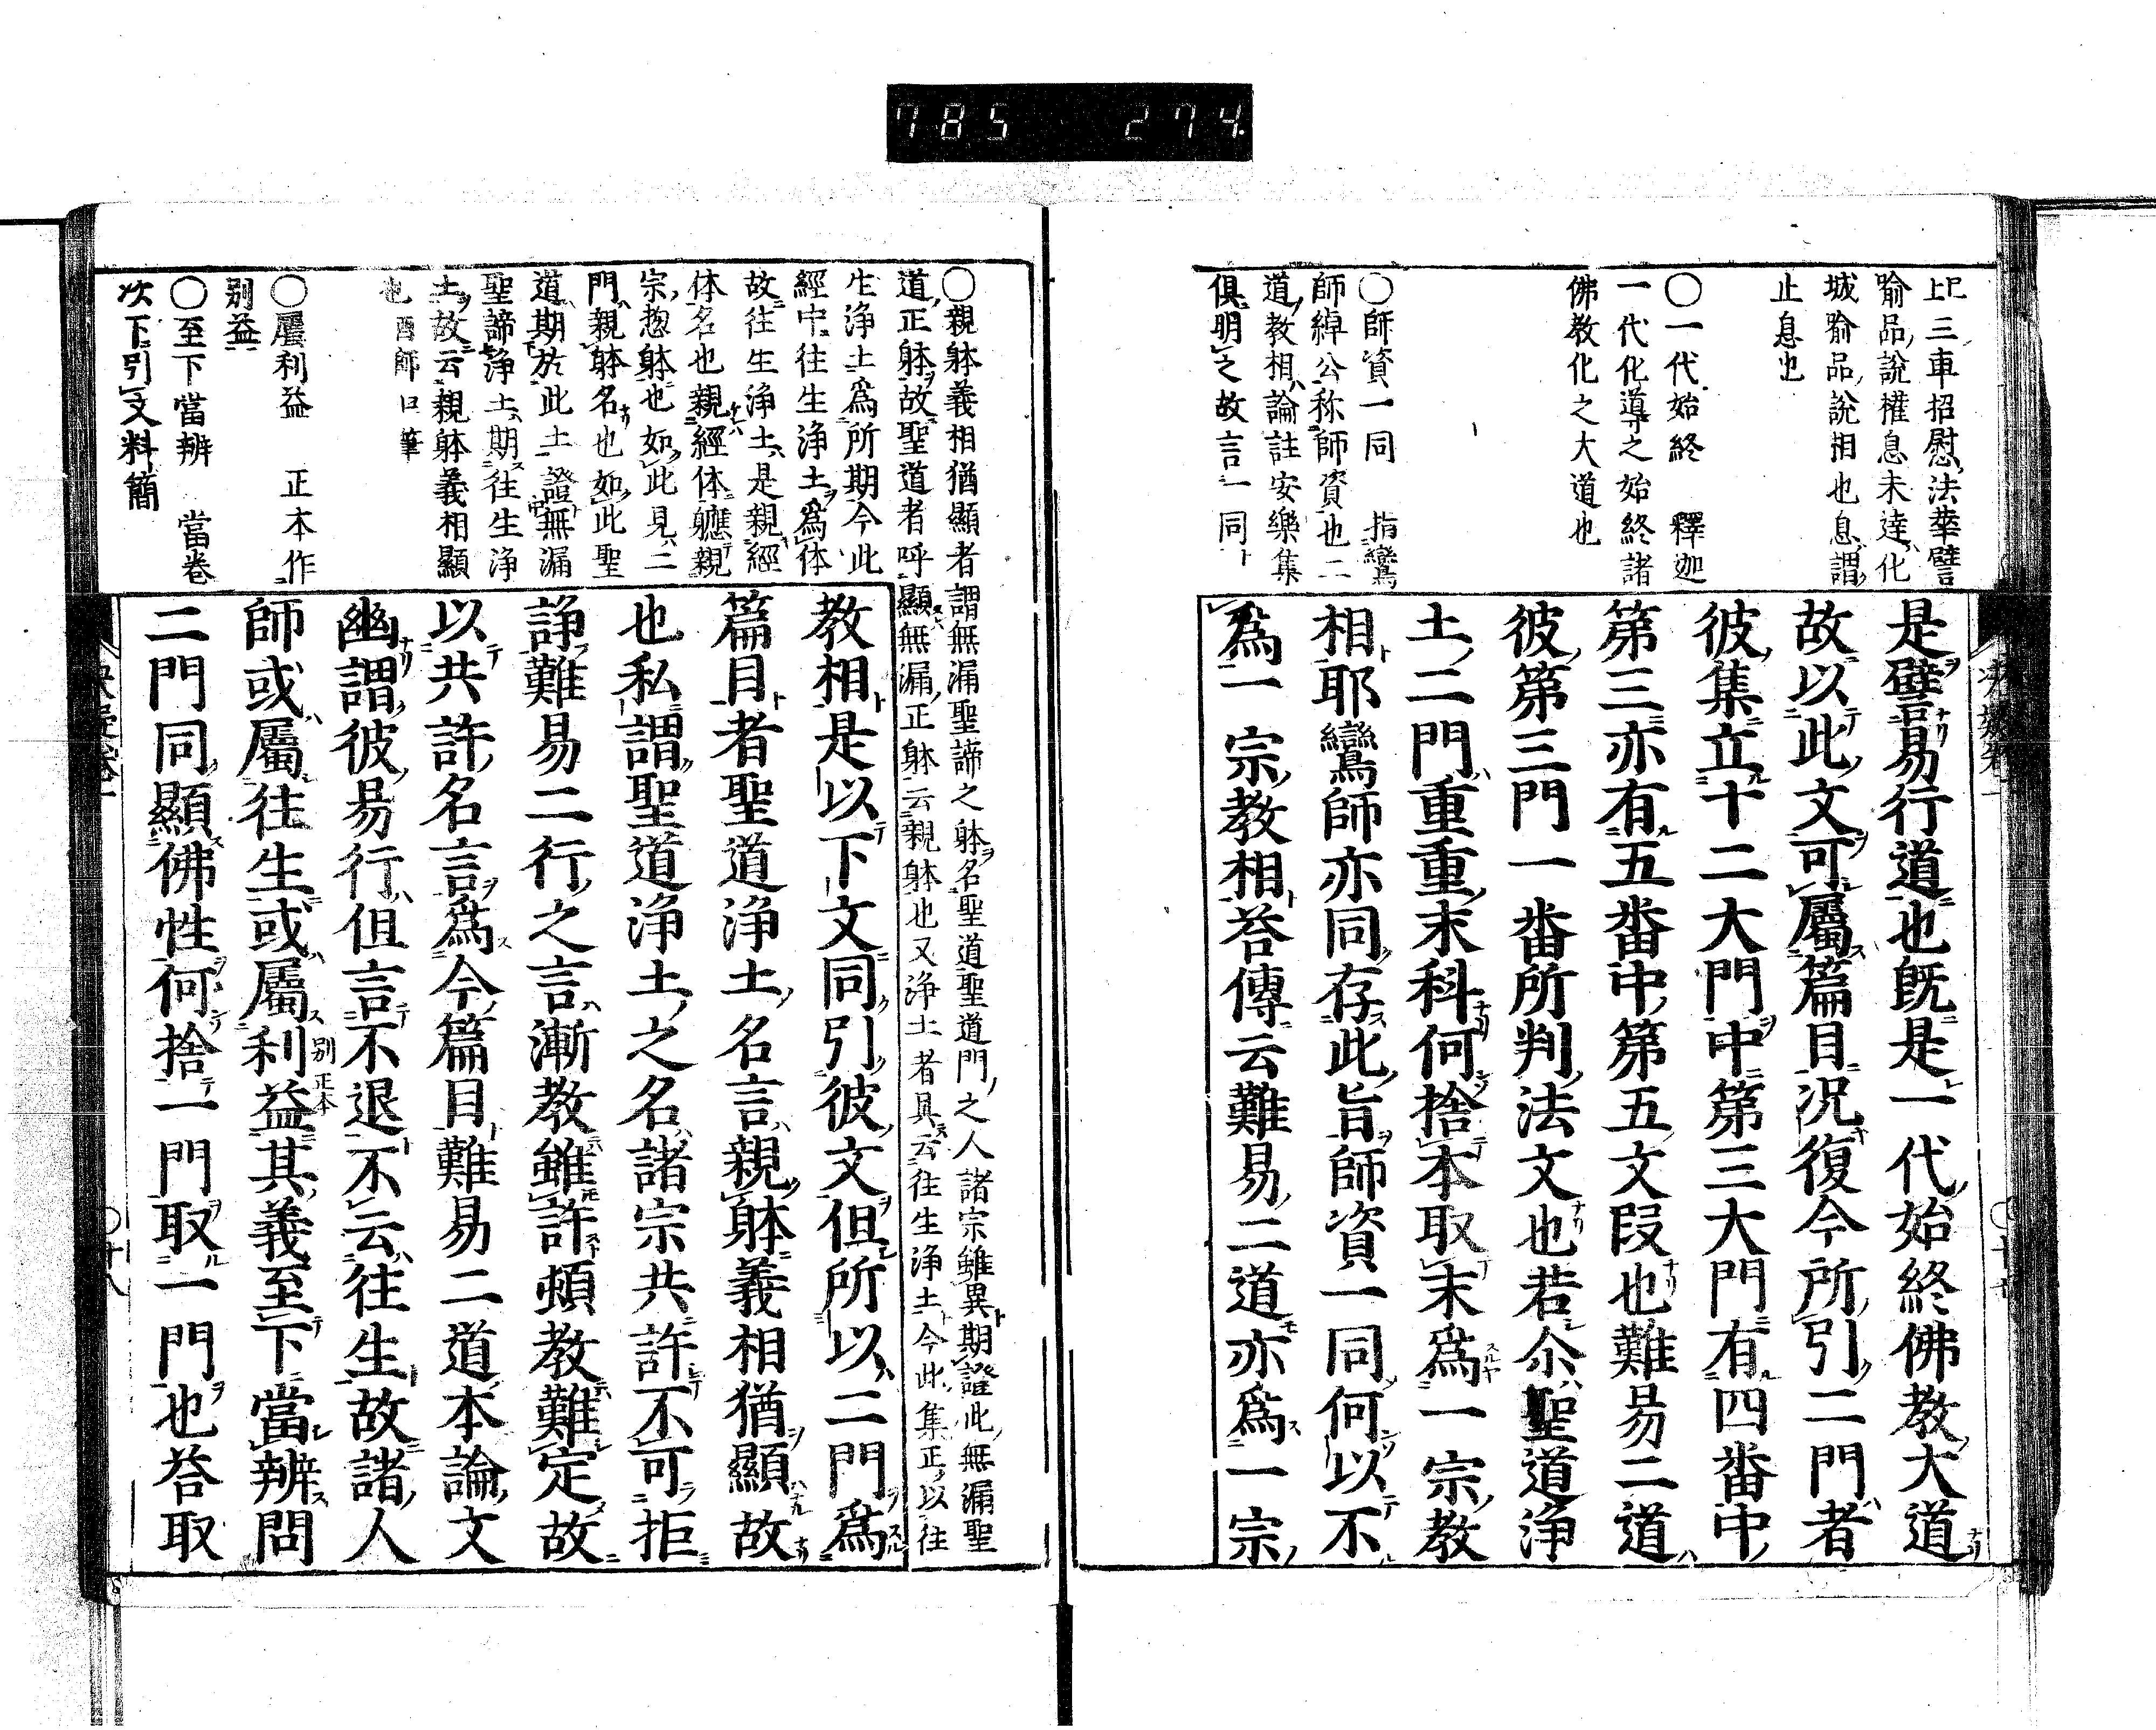 785 274
上巳三車招慰法華譬
喩品說權息未達化
城喩品說相也息謂
止息也
○一代始終 釋迦
一代化導之始終諸
佛教化之大道也
○師資一同 指鸞
師綽公称師資也二
道教相論註安樂集
俱明之故言一同
是譬易行道也既是一代始終佛教大道
故以此文可屬篇目况復今所引二門者
彼集立十二大門中第三大門有四畨中
第三亦有五畨中第五文段也難易二道
彼第三門一畨所判法文也若尒聖道浄
土二門重重末科何捨本取末爲一宗教
相耶鸞師亦同存此旨師資一同何以不
爲一宗教相荅傳云難易二道亦爲一宗
○十七
○親躰義相猶顯者謂無漏聖諦之躰名聖道聖道門之人諸宗雖異期證此無漏聖
道正躰故聖道者呼顯無漏正躰云親躰也又浄土者具云往生浄土今此集正以往
生浄土爲所期今此
經中往生浄土爲体
故往生浄土是親經
体名也親經体軈親
宗惣躰也如此見二
門親躰名也如此聖
道期於此土證無漏
聖諦浄土期往生浄
土故云親躰義相顯
也酉師口筆
○屬利益 正本作
別益
○至下當辨 當卷
次下引文料簡
教相是以下文同引彼文但所以二門爲
篇目者聖道浄土名言親躰義相猶顯故
也私謂聖道浄土之名諸宗共許不可拒
諍難易二行之言漸教雖許頓教難定故
以共許名言爲今篇目難易二道本論文
幽謂彼易行但言不退不云往生故諸人
師或屬往生或屬利益其義至下當辨問
別正本
二門同顯佛性何捨一門取一門也荅取
○十八